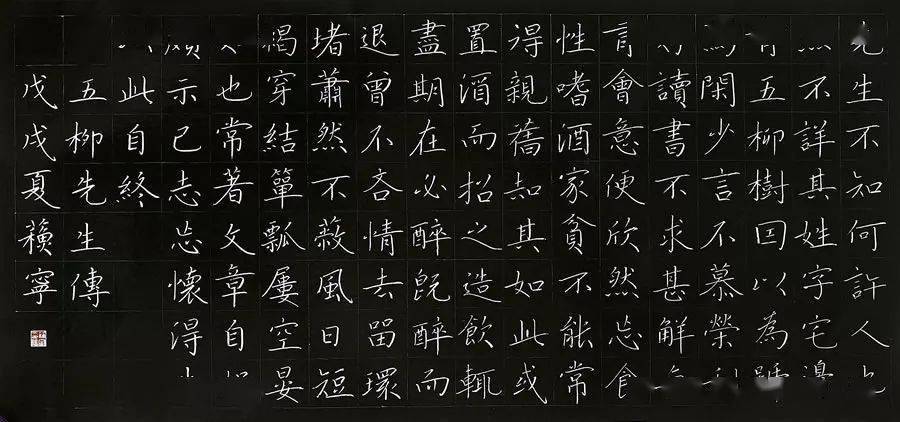 生不知何許人
不詳其姓字宅邊
五柳樹囙以為號
焉閑少言不慕榮
讀書不求甚解
會意便欣然忘食
性嗜酒家貧不能常
得親舊知其如此或
置酒而招之造飲輒
盡期在必醉既醉而
退曾不吝情去留環
堵蕭然不蔽風日短
褐穿結簞瓢屢空晏
也常著文章自
頗示己志忘懷得
此自終
五柳先生傳
戊戌夏賴寧